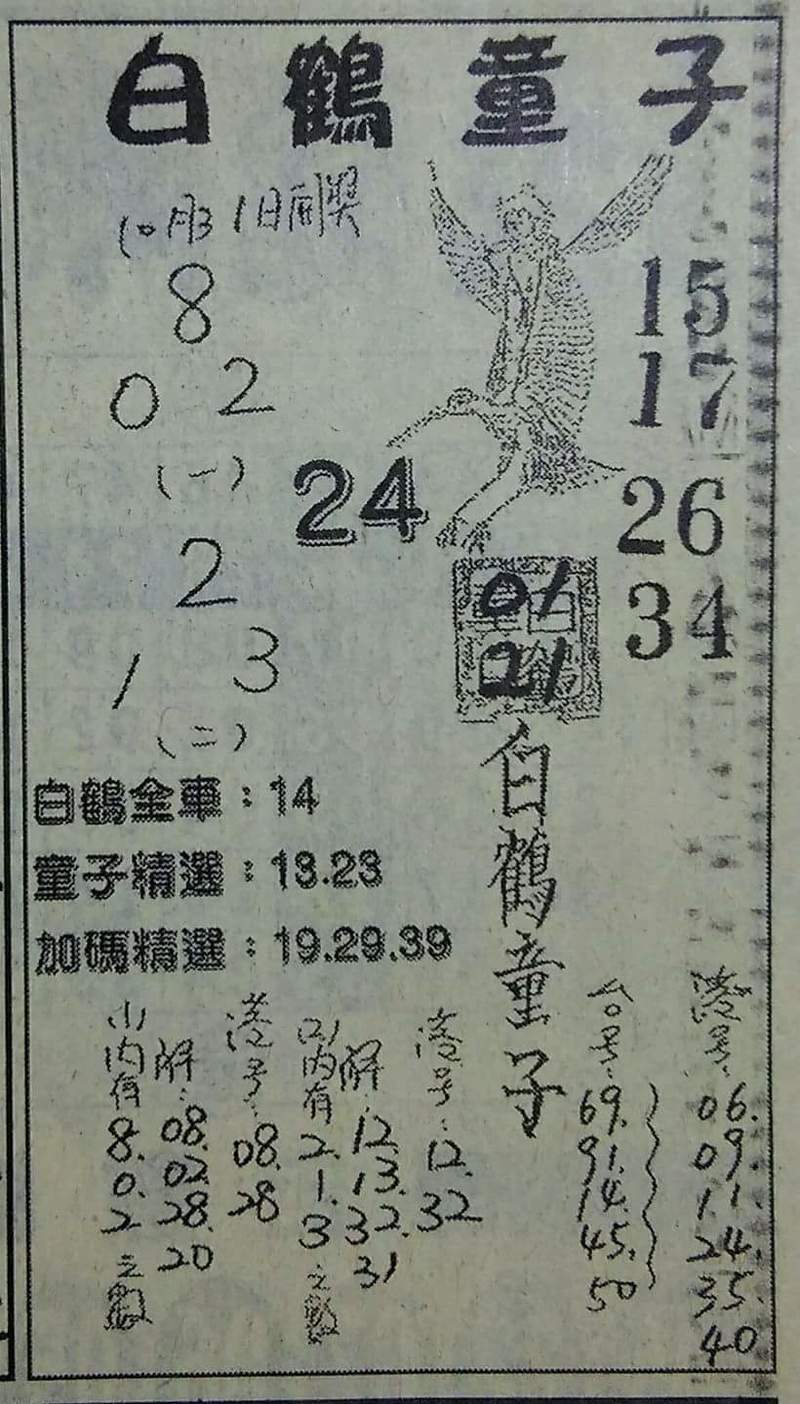 白鶴童子
10月31日開獎
8
0 2
(一)
2
1 3
(二)
24
15
17
26
34
01
21
白鶴童子
白鶴全車：14
童子精選：13.23
加碼精選：19.29.39
(1)內有8.0.2之數
解：08.02.28.20
港号：08.28
(2)內有2.1.3之數
解：12.13.32.31
港号：12.32
台号：69.91.14.45.50
港号：06.09.11.24.35.40